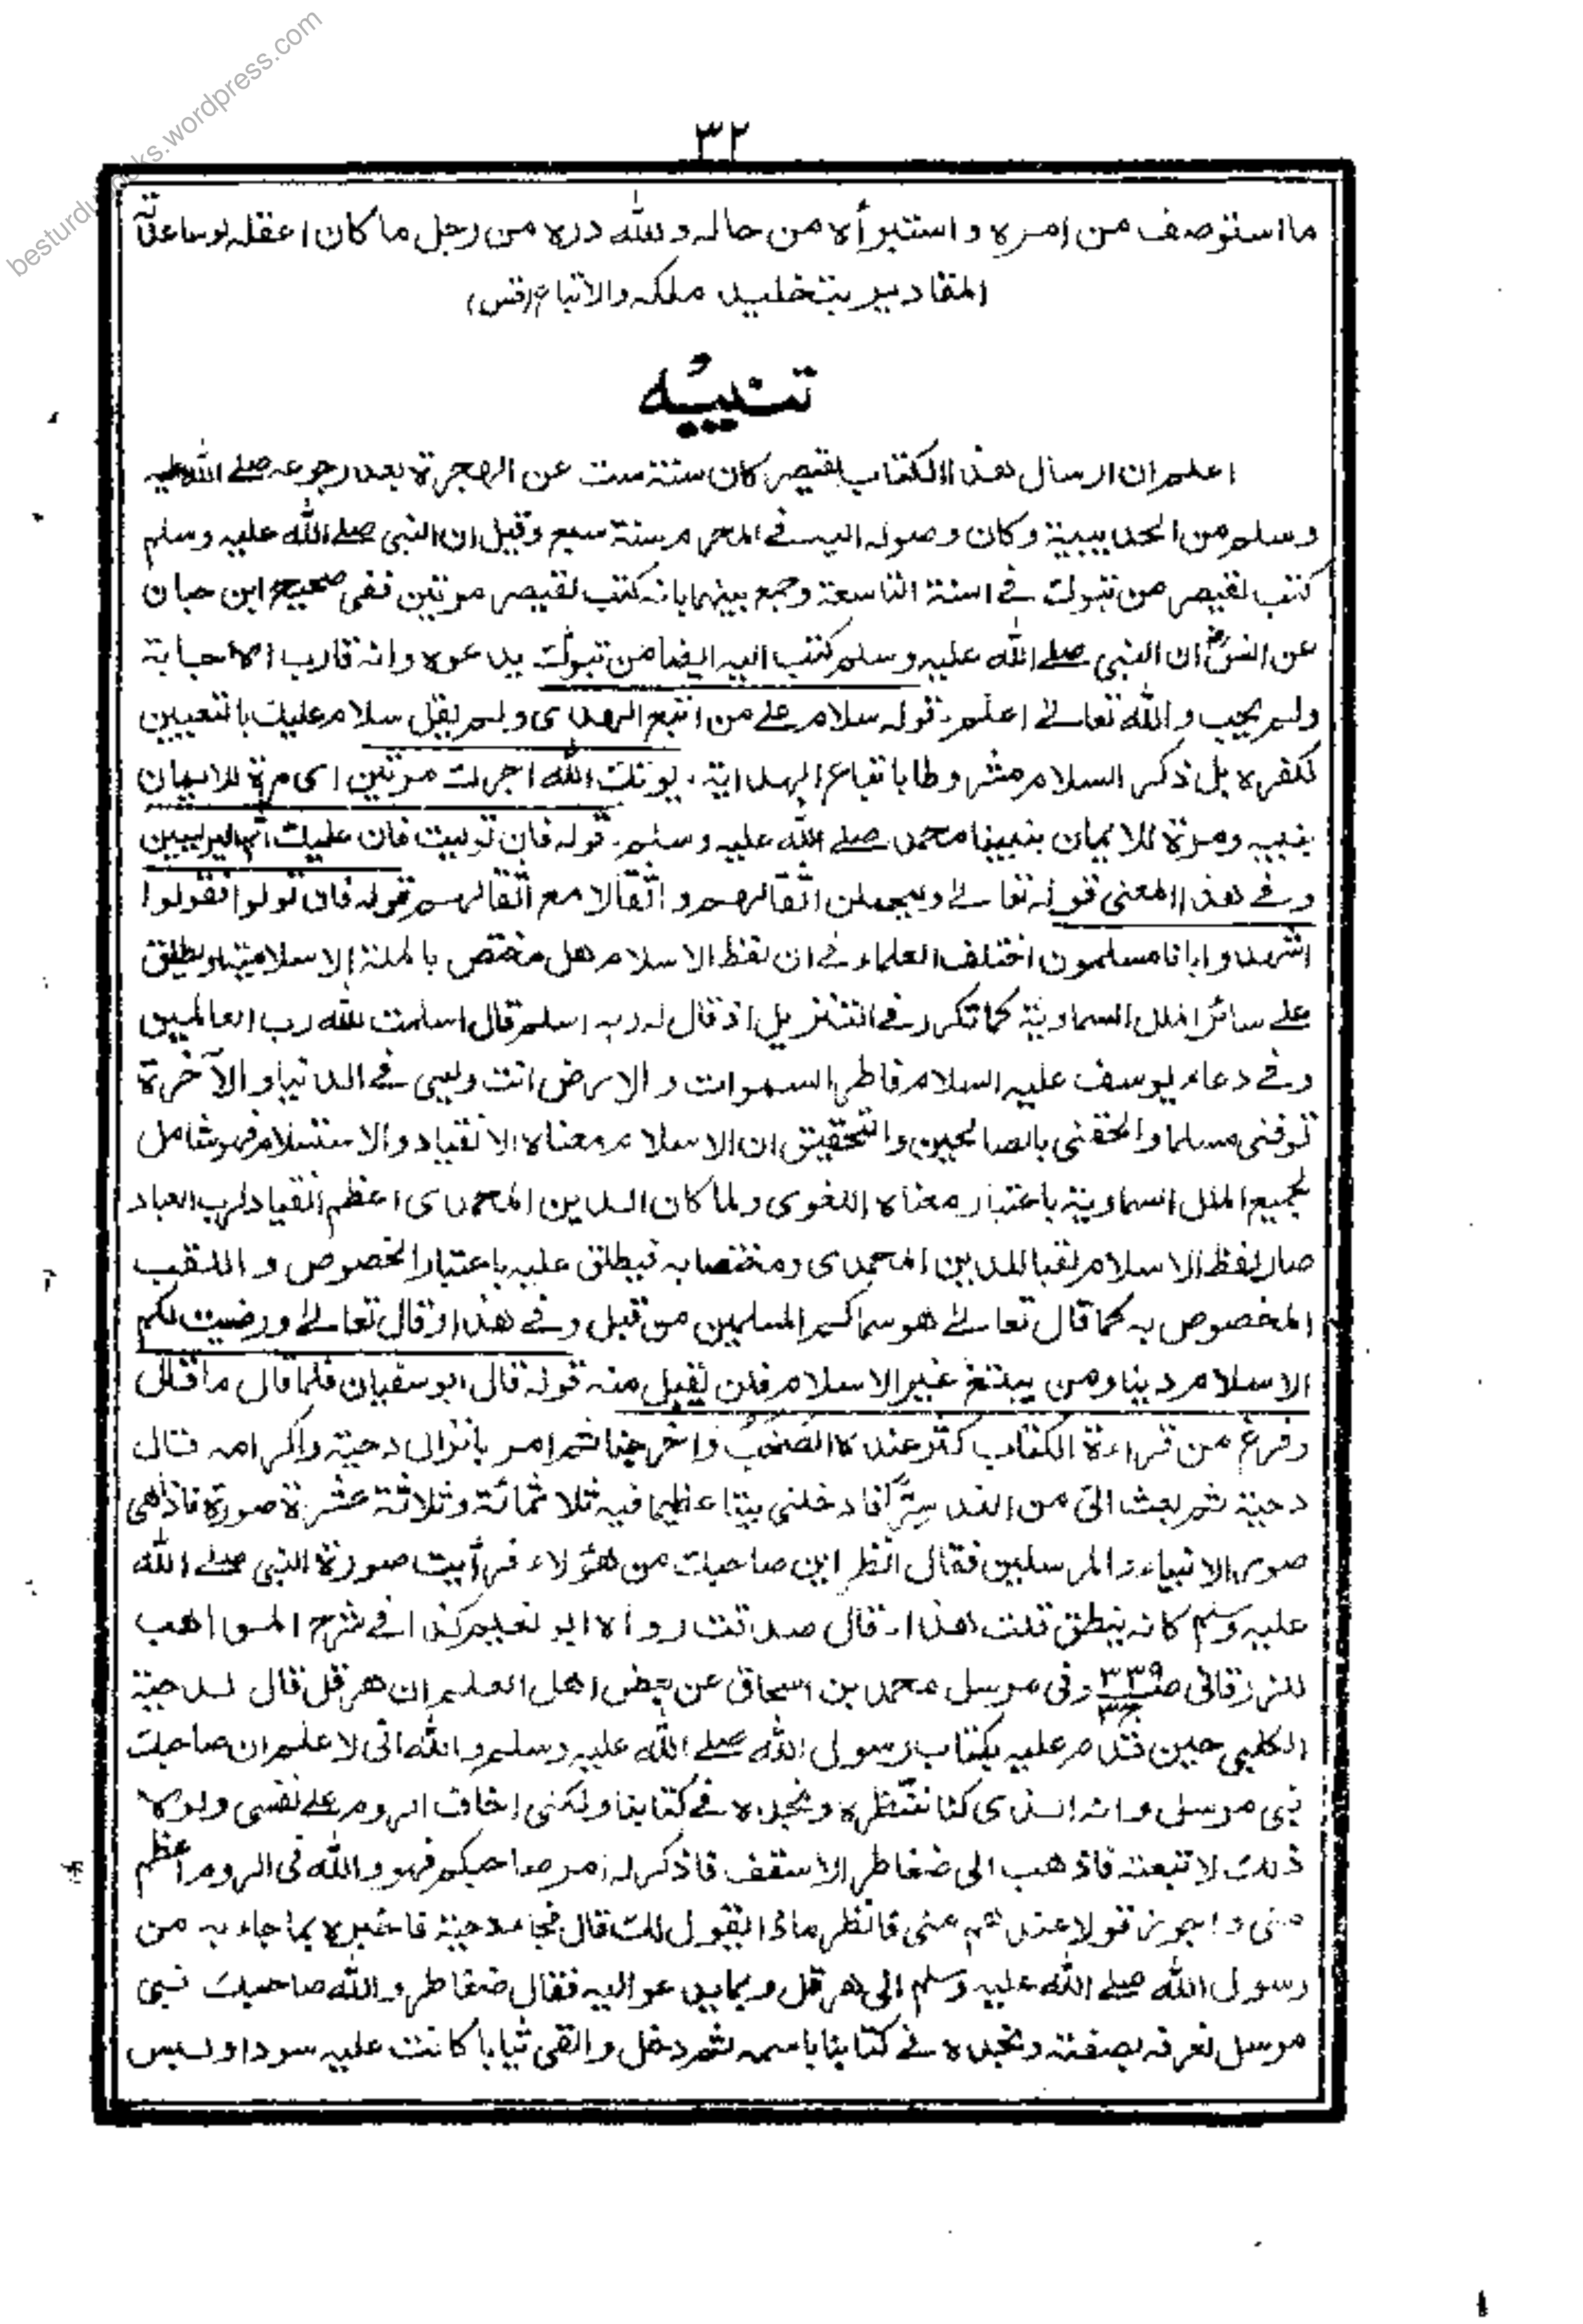 besturdubooks.wordpress.com
٣٢
ما استوصف من امره و استبرأه من حاله و لله دره من رجل ما كان اعقله لو ساعدته
المقادير بتخليد ملكه والاتباع (قس)
تنبيه
اعلم ان ارسال هذا الكتاب لقيصر كان سنة ست عن الهجرة بعد رجوعه صلے الله عليه
وسلم من الحديبية وكان وصوله اليه فے المحرم سنة سبع وقيل ان النبى صلے الله عليه وسلم
كتب لقيصر من تبوك فے السنة التاسعة وجمع بينهما بانه كتب لقيصر مرتين ففى صحيح ابن حبان
عن انسؓ ان النبى صلے الله عليه وسلم كتب اليه ايضا من تبوك يدعوه وانه قارب الاجابة
ولم يجب و الله تعالےٰ اعلم. قوله سلام علے من اتبع الهدى ولم يقل سلام عليك بالتعيين
لكفره بل ذكر السلام مشروطا باتباع الهداية. يؤتك الله اجرك مرتين اى مرة للايمان
بنبيه ومرة للايمان بنبينا محمد صلے الله عليه وسلم. قوله فان توليت فان عليك اثم اليريسين
وفے هذا المعنى قوله تعالےٰ وليحملن اثقالهم و اثقالا مع اثقالهم قوله فان تولوا فقولوا
اشهدوا بانا مسلمون اختلف العلماء فے ان لفظ الاسلام هل مختص بالملة الاسلامية او يطلق
علے سائر الملل السماوية كما تكرر فے التنزيل اذ قال له ربه اسلم قال اسلمت لله رب العالمين
وفے دعاء يوسف عليه السلام فاطر السموات و الارض انت وليى فے الدنيا و الآخرة
توفنى مسلما و الحقنى بالصالحين والتحقيق ان الاسلام معناه الانقياد و الاستسلام فهو شامل
لجميع الملل السماوية باعتبار معناه اللغوى ولما كان الدين المحمدى اعظم انقياد لرب العباد
صار لفظ الاسلام لقبا للدين المحمدى ومختصا به فيطلق عليه باعتبار الخصوص و اللقب
المخصوص به كما قال تعالےٰ هو سماكم المسلمين من قبل وفے هذا و قال تعالےٰ ورضيت لكم
الاسلام دينا ومن يبتغ غير الاسلام فلن يقبل منه قوله قال ابو سفيان فلما قال ما قال
وفرغ من قراءة الكتاب كثر عنده الصخب و اخرجنا ثم امر بانزال دحية واكرامه قال
دحية ثم بعث الىّ من الغد سرًّا فادخلنى بيتا عظيما فيه ثلا ثمائة وثلاثة عشرة صورة فاذا هى
صور الانبياء و المرسلين فقال انظر اين صاحبك من هؤلاء فرأيت صورة النبى صلے الله
عليه وسلم كانه ينطق قلت هذا. قال صدقت رواه ابو نعيم كذا فے شرح المواهب
للزرقانى ص٣٣٩ ج٣ وفى مرسل محمد بن اسحاق عن بعض اهل العلم ان هرقل قال لدحية
الكلبى حين قدم عليه بكتاب رسول الله صلے الله عليه وسلم و الله انى لا علم ان صاحبك
نبى مرسل وانه الذى كنا ننتظره و نجده فے كتابنا ولكنى اخاف الروم علے نفسى ولولا
ذلك لاتبعته فاذهب الى ضغاطر الاسقف فاذكر له امر صاحبكم فهو و الله فى الروم اعظم
منى و اجوز قولا عندهم منى فانظر ماذا يقول لك قال فجاءه دحية فاخبره بما جاء به من
رسول الله صلے الله عليه وسلم الى هرقل وبما يدعو اليه فقال ضغاطر و الله صاحبك نبى
مرسل نعرفه بصفته ونجده فے كتابنا باسمه ثم دخل و القى ثيابا كانت عليه سودا ولبس